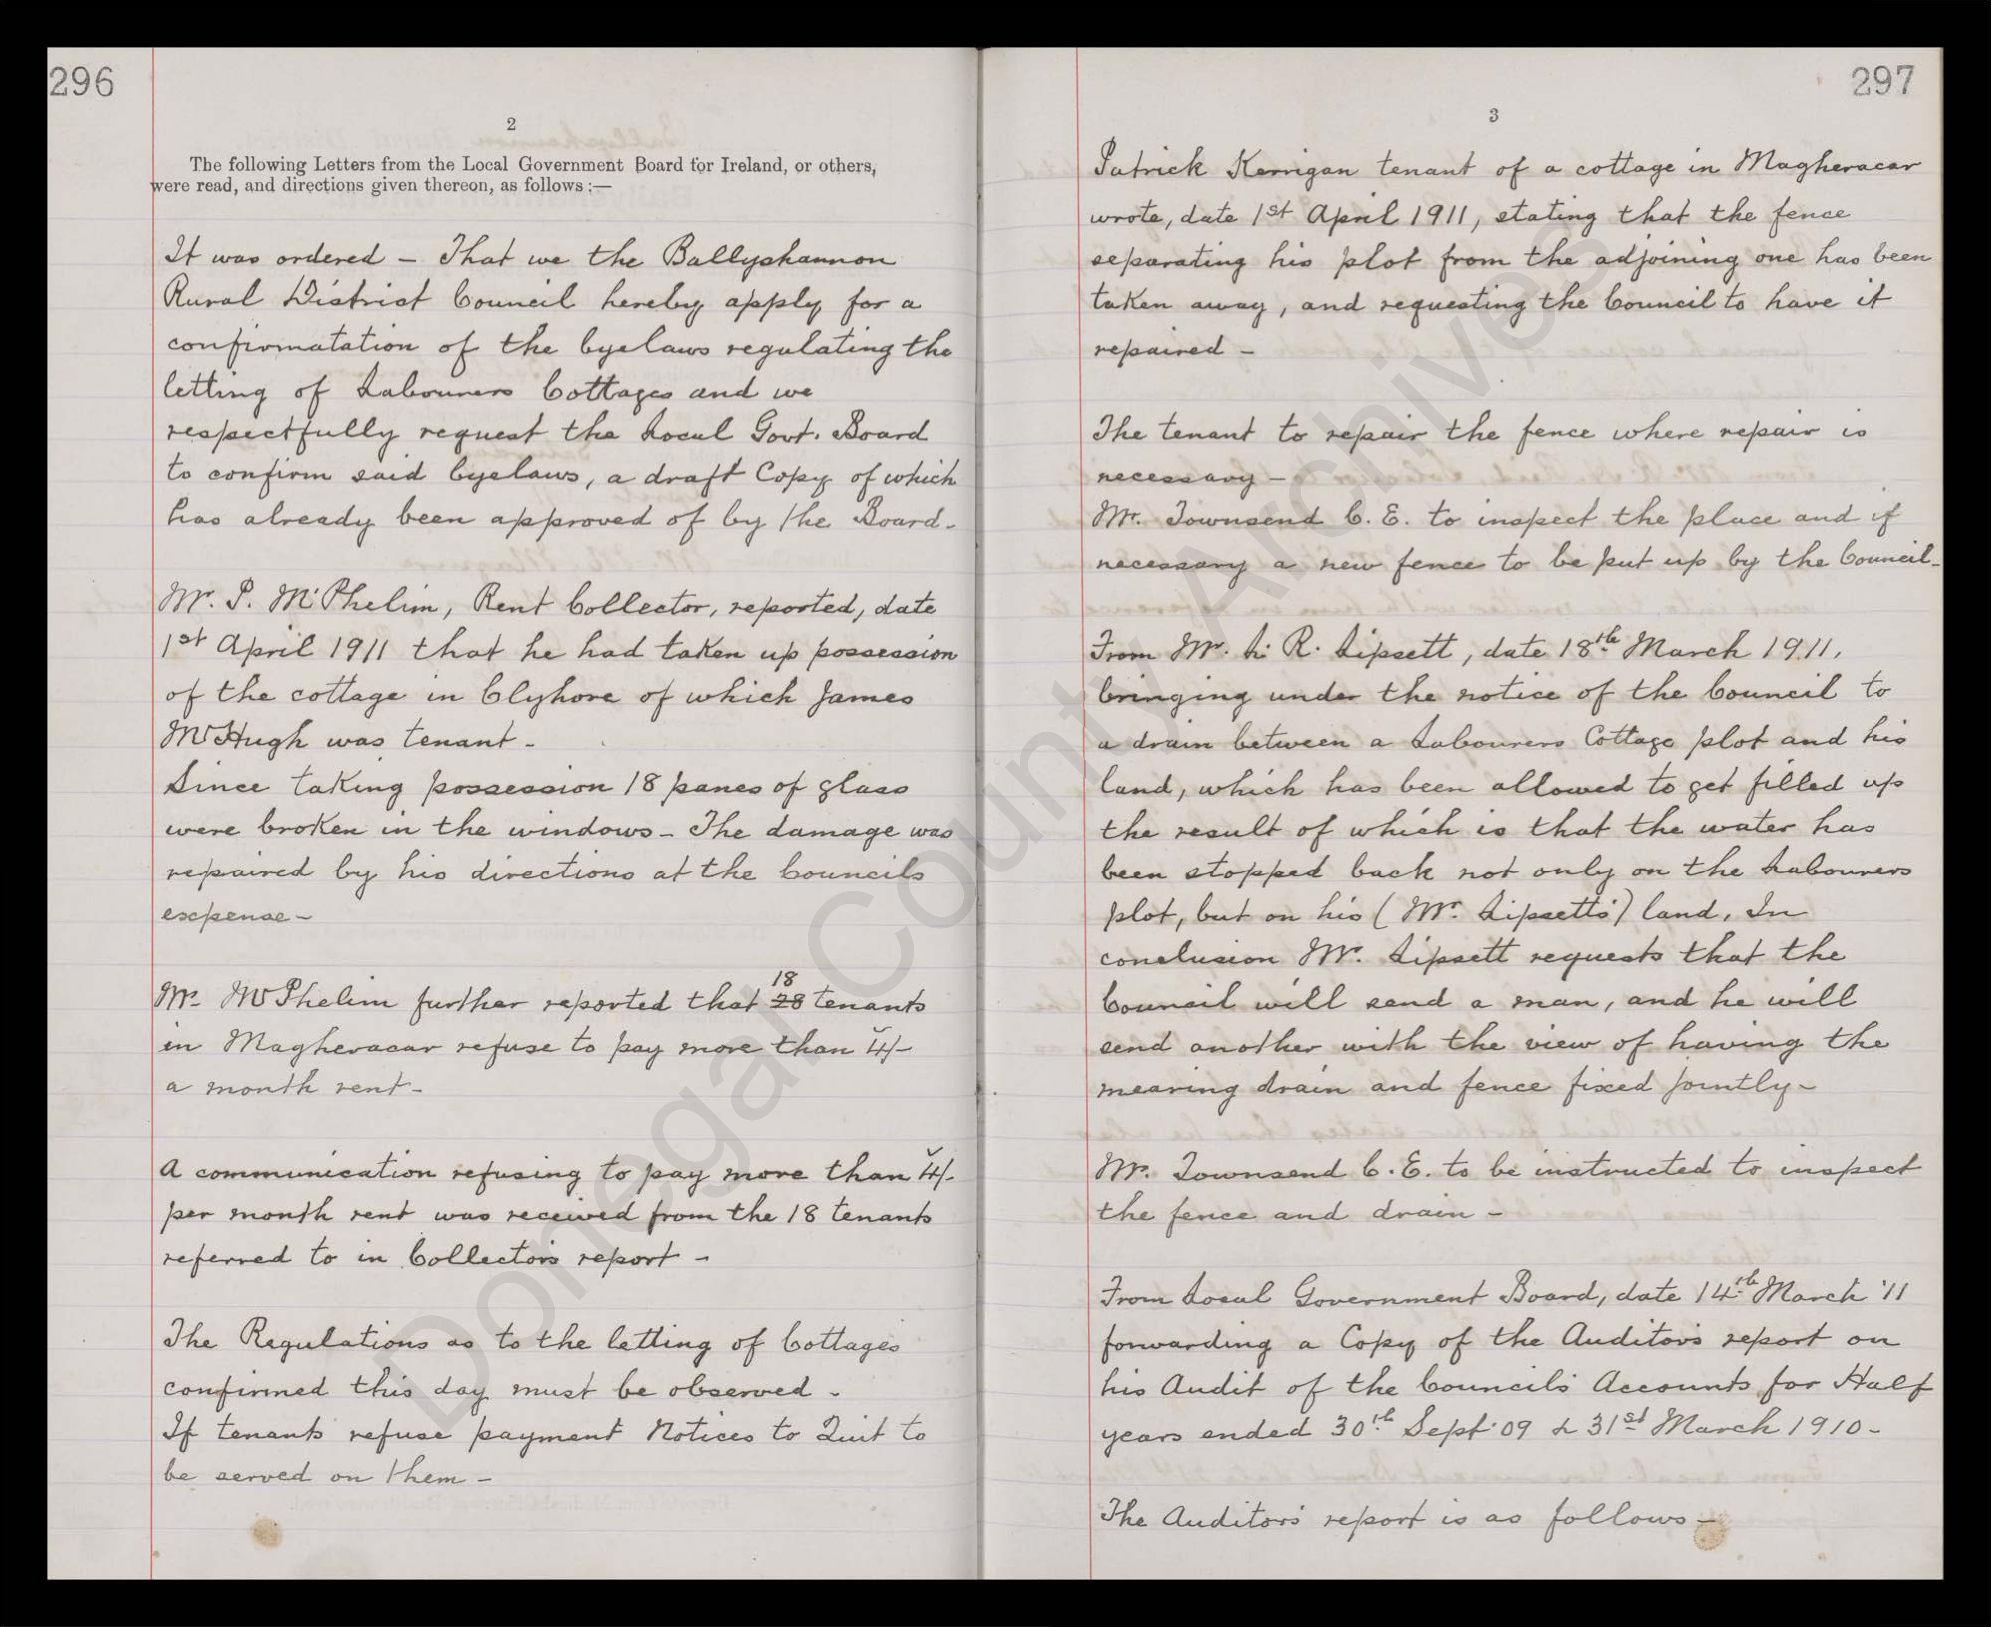 296
2
The following Letters from the Local Government Board for Ireland, or others,
were read, and directions given thereon, as follows :—
It was ordered – That we the Ballyshannon
Rural District Council hereby apply for a
confirmatation of the byelaws regulating the
letting of Labourers Cottages and we
respectfully request the Local Govt. Board
to confirm said byelaws, a draft Copy of which
has already been approved of by the Board-
Mr. P. McPhelim, Rent Collector, reported, date
1st April 1911 that he had taken up possession
of the cottage in Clyhore of which James
McHugh was tenant -
Since taking possession 18 panes of glass
were broken in the windows - The damage was
repaired by his directions at the Councils
expense -
18
Mr. McPhelim further reported that 28 tenants
in Magheracar refuse to pay more than 4/-
a month rent -
A communication refusing to pay more than 4/-
per month rent was received from the 18 tenants
referred to in Collectors report -
The Regulations as to the letting of Cottages
confirmed this day must be observed -
If tenants refuse payment Notices to Quit to
be served on them -
297
3
Patrick Kerrigan tenant of a cottage in Magheracar
wrote, date 1st April 1911, stating that the fence
separating his plot from the adjoining one has been
taken away, and requesting the Council to have it
repaired -
The tenant to repair the fence where repair is
necessary -
Mr. Townsend C. E. to inspect the place and if
necessary a new fence to be put up by the Council -
From Mr. L. R. Lipsett, date 18th March 1911,
bringing under the notice of the Council to
a drain between a Labourers Cottage plot and his
land, which has been allowed to get filled up
the result of which is that the water has
been stopped back not only on the Labourers
plot, but on his (Mr. Lipsetts') land. In
conclusion Mr. Lipsett requests that the
Council will send a man, and he will
send another with the view of having the
mearing drain and fence fixed jointly -
Mr. Townsend C. E. to be instructed to inspect
the fence and drain -
From Local Government Board, date 14th March '11
forwarding a Copy of the Auditors report on
his Audit of the Councils' Accounts for Half
years ended 30th Sept '09 & 31st March 1910 -
The Auditors' report is as follows -
Donegal County Archives